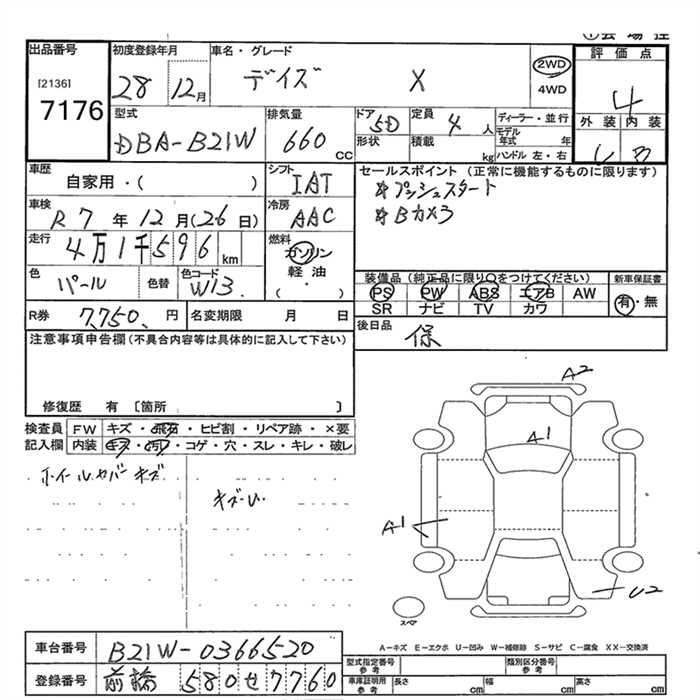 出品番号
[2136]
7176
初度登録年月
28 12月
車名・グレード
デイズ X
2WD
4WD
評価点
4
外装 内装
型式
DBA-B21W
排気量
660 CC
ドア
5D
形状
定員
4 人
積載
kg
ディーラー・並行
モデル年式 年
ハンドル 左・右
車歴
自家用・( )
シフト
IAT
セールスポイント (正常に機能するものに限ります)
*プッシュスタート
*Bカメラ
車検
R7年12月(26日)
冷房
AAC
走行
4万1千596 km
燃料
ガソリン
軽油
( )
色
パール
色替
色コード
W13
装備品 (純正品に限り○をつけてください)
PS PW ABS エアB AW
SR ナビ TV カワ
新車保証書
有・無
R券
7,750 円
名変期限 月 日
後日品
保
注意事項申告欄(不具合内容等は具体的に記入して下さい)
修復歴 有 〔箇所 〕
検査員記入欄
FW キズ・飛石・ヒビ割・リペア跡・×要
内装 キズ・汚レ・コゲ・穴・スレ・キレ・破レ
ホイールカバーキズ
キズ・U
A2
A1
A1
U2
スペア
A-キズ E-エクボ U-凹み W-補修跡 S-サビ C-腐食 XX-交換済
車台番号
B21W-0366520
登録番号
前橋 580 せ 7760
型式指定番号 参考
類別区分番号 参考
車庫証明用 参考
長さ cm
幅 cm
高さ cm